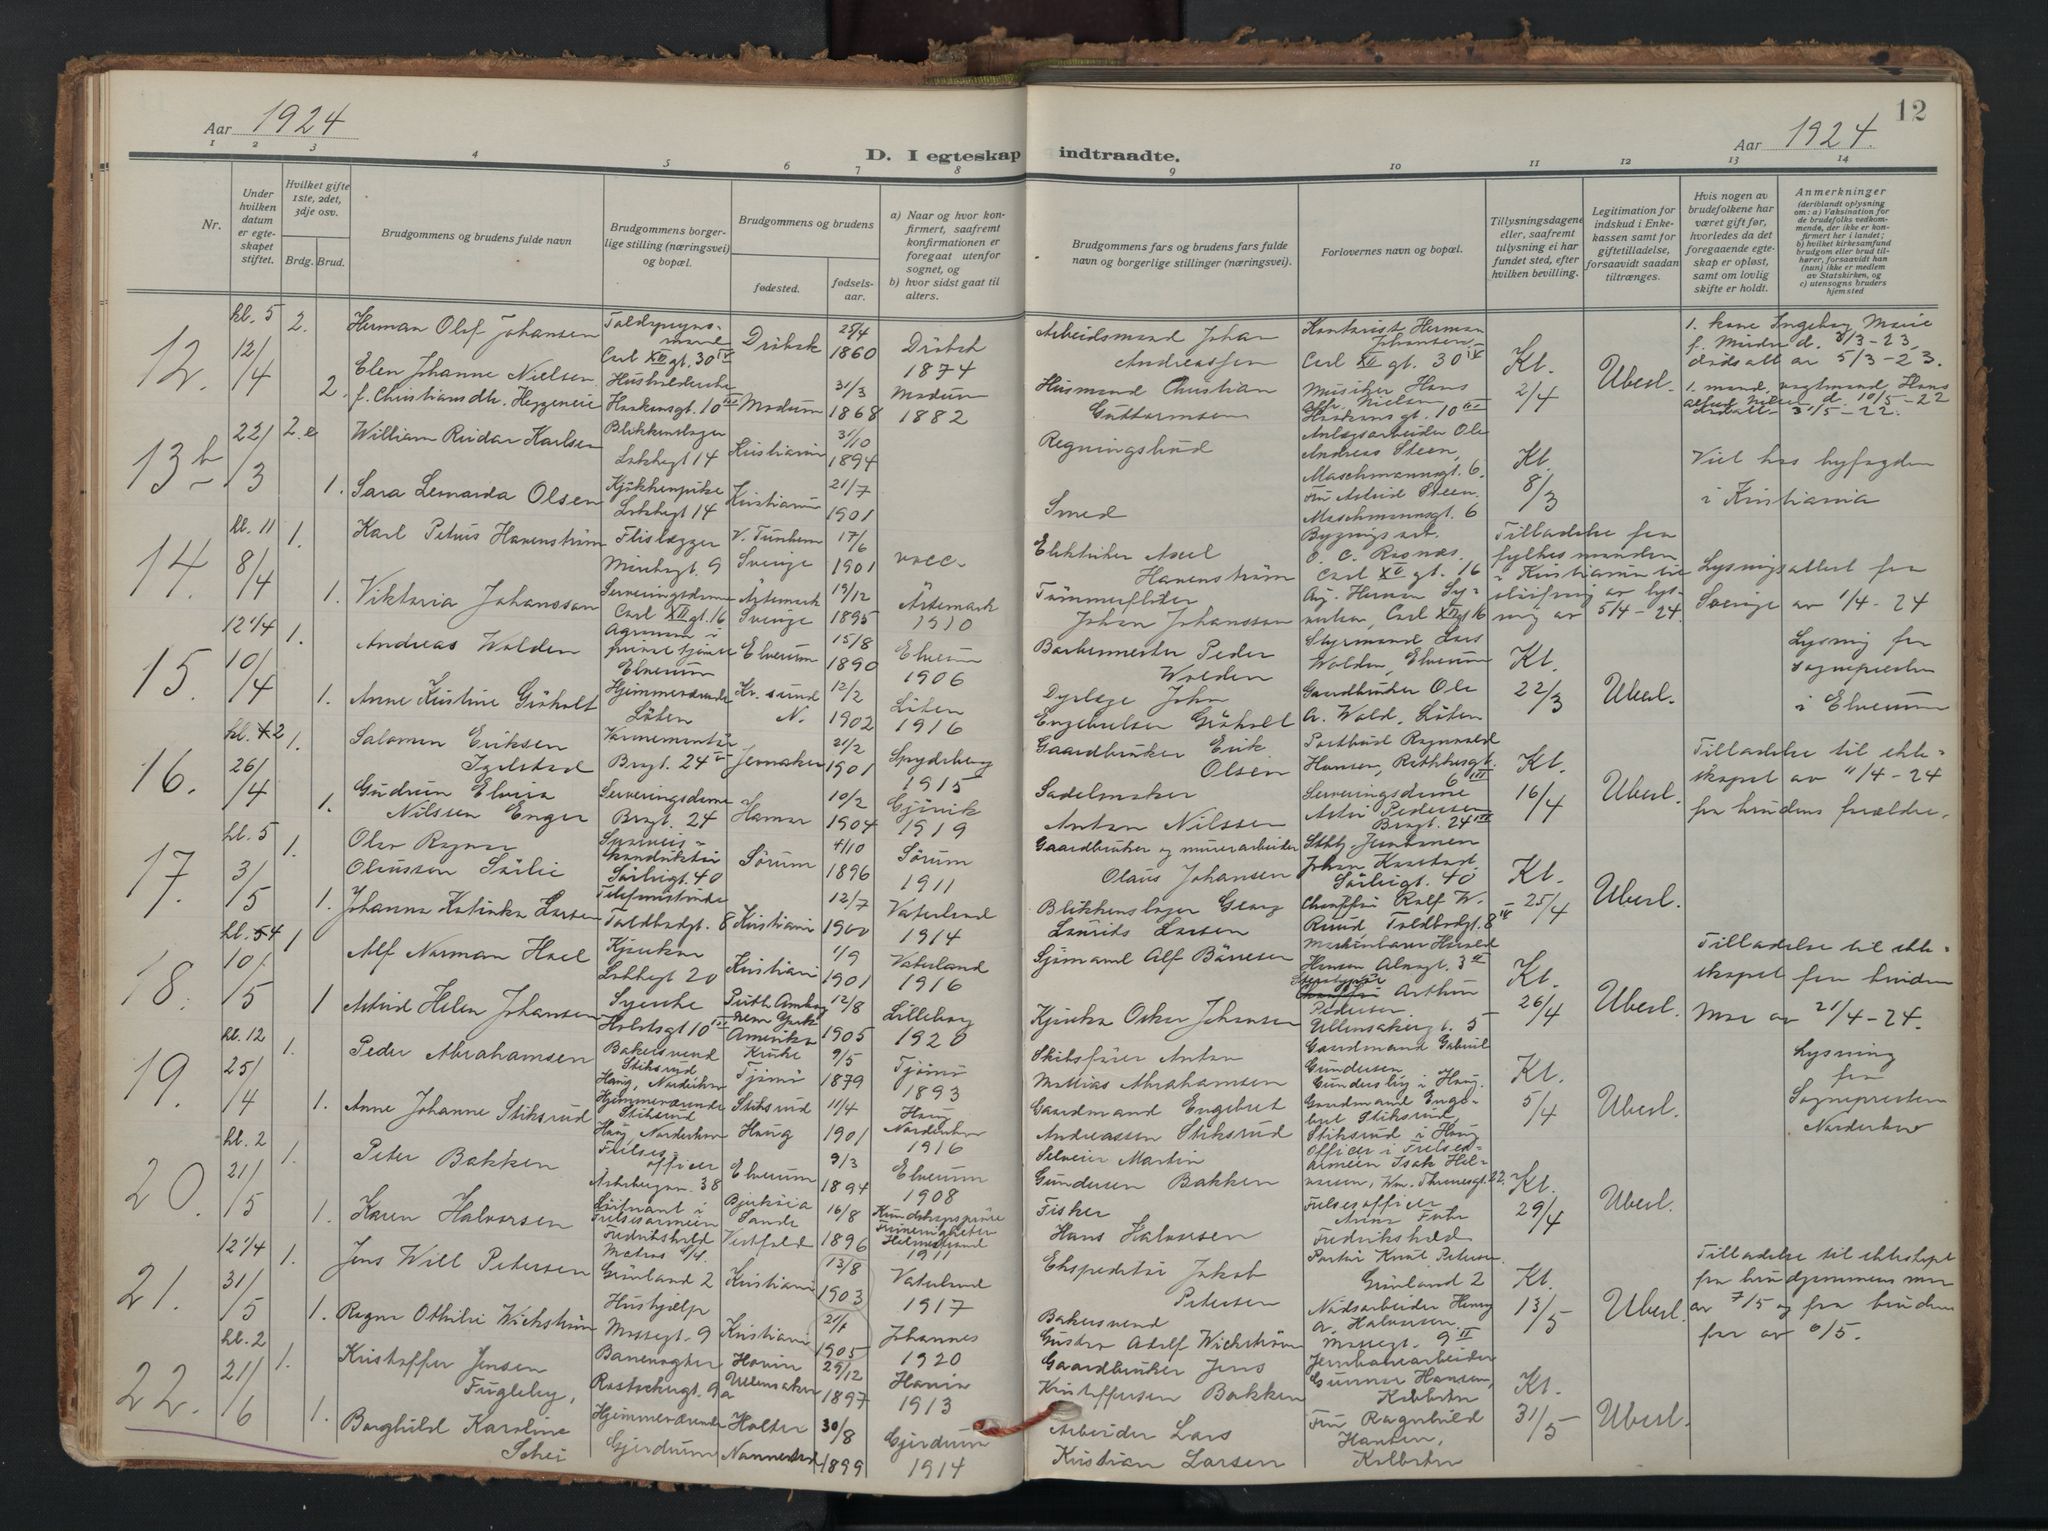 Aar 1924
12
Aar 1924.
D. I egteskap indtraadte.
1 2 3 4 5 6 7 8 9 10 11 12 13 14
Nr.
Under hvilken datum er egteskapet stiftet.
Hvilket gifte 1ste, 2det, 3dje osv.
Brdg. Brud.
Brudgommens og brudens fulde navn
Brudgommens borgerlige stilling (næringsvei) og bopæl.
Brudgommens og brudens
fødested.
fødselsaar.
a) Naar og hvor konfirmert, saafremt konfirmationen er foregaat utenfor sognet, og
b) hvor sidst gaat til alters.
Brudgommens fars og brudens fars fulde navn og borgerlige stillinger (næringsvei).
Forlovernes navn og bopæl.
Tillysningsdagene eller, saafremt tillysning ei har fundet sted, efter hvilken bevilling.
Legitimation for indskud i Enkekassen samt for giftetilladelse, forsaavidt saadan tiltrænges.
Hvis nogen av brudefolkene har været gift før, hvorledes da det foregaaende egteskap er opløst, samt om lovlig skifte er holdt.
Anmerkninger
(deriblandt oplysning om: a) Vaksination for de brudefolks vedkommende, der ikke er konfirmert her i landet; b) hvilket kirkesamfund brudgom eller brud tilhører, forsaavidt han (hun) ikke er medlem av Statskirken, og c) utensogns bruders hjemsted
12. kl. 5 12/4 2. Herman Olaf Johansen Carl XII gt. 30 IV Drøbak 25/4 1860 Drøbak 1874 Arbeidsmand Johan Andreassen Kontorist Herman Johansen, Carl XII gt. 30 IV Kl. 2/4 Uberl. 1. kone Ingeborg Marie d. 3/3-23, 5/3-23.
2. Elen Johanne Nielsen f. Christiansdtr. Heggeneie Haakonsgt. 10 III Modum 31/3 1868 Modum 1882 Husmand Christian Guttormsen Musiker Hans Nielsen Haakonsgt. 10 III 1. mand, vagtmand, Hans d. 10/5-22 31/5-22.
13b 22/3 2. e William Reidar Karlsen Blikkenslager Lakkegt 14 Kristiania 31/10 1894 Regningsbud Anlægsarbeider Ole Andreas Steen, Maschmannsgt. 6. Kl. 8/3 Viet hos byfogden i Kristiania
1. Sara Leonarda Olsen Kjøkkenpike Lakkegt 14 Kristiania 21/7 1901 Smed Fru Astrid Steen. Maschmannsgt. 6
14. kl. 11 8/4 1. Karl Petrus Havenstrøm Flislægger V. Tunhem Sverige 17/6 1901 vacc. Elektriker Axel Havenstrøm Carl XII gt. 16 Tilladelse fra fylkesmanden i Kristiania til sløifning av lysning av 5/4-24. Lysningsattest fra Sverige av 1/4-24
1. Viktoria Johansson Serveringsdame Carl XII gt. 16 Årtemark Sverige 19/12 1895 Årtemark 1910 Tømmerfløter Johan Johansson Carl XII gt 16
15. 12 1/4 10/4 1. Andreas Wolden Agronom i privat tjeneste Elverum Elverum 15/8 1890 Elverum 1906 Barbermester Peder Wolden Styrmand Lars Wolden, Elverum Kl. 22/3 Uberl. Lysning fra sognepresten i Elverum
1. Anne Kristine Grøholt Hjemmeværende Løten Kr. sund N. 12/2 1902 Løten 1916 Dyrlæge John Engebretsen Grøholt Gaardbruker Ole A. Wold, Løten
16. kl. 2 26/4 1. Salomon Eriksen Igelstad Brogt. 24 Jevnaker 21/2 1901 Spydeberg 1915 Gaardbruker Erik Olsen Postbud Ragnvald Hansen, Kl. 16/4 Uberl. Tilladelse til ekteskapet av 11/4-24 fra brudens forældre.
1. Gudrun Elvira Nilssen Enger Serveringsdame Brogt. 24 Hamar 10/2 1904 Gjøvik 1919 Sadelmaker Anton Nilssen Serveringsdame Astri Pedersen Brogt. 24 III
17. kl. 5 3/5 1. Olav Ragnar Oliussen Sørlie Sporveiskonduktør Sørligt. 40 Sørum 4/10 1896 Sørum 1911 Gaardbruker og murerarbeider Olaus Johansen Johan Kaastad Sørligt. 40 Kl. 25/4 Uberl.
1. Johanna Katinka Larsen Telefonistinde Toldbodgt. 8 Kristiania 12/7 1900 Vaterland 1914 Blikkenslager Georg Laurits Larsen Chauffør Rolf W. Ruud Toldbodgt. 8 IV
18. kl. 4 10/5 1 Alf Norman Hoel Lakkegt 20 Kristiania 1/9 1901 Vaterland 1916 Sjømand Alf Børresen Harald Hansen Kl. 26/4 Uberl. Tilladelse til ekteskapet fra brudens Mor av 21/4-24.
1 Astrid Helen Johansen Syerske Holstsgt 10 III Perth Amboy New York Amerika 12/8 1905 Lilleborg 1920 Oskar Johansen Arthur Pedersen Ullensakergt. 5
19. kl. 12 25/4 1. Peder Abrahamsen Bakersvend Stiksrud Haug, Norderhov Tjømø 9/5 1879 Tjømø 1893 Skibsfører Anton Mattias Abrahamsen Gaardmand Gabriel Gundersen Kl. 5/4 Uberl. Lysning fra Sognepresten Norderhov
1. Anne Johanne Stiksrud Hjemmeværende Stiksrud Haug Norderhov Stiksrud Haug 11/4 1901 Haug Norderhov 1916 Gaardmand Engebret Andreassen Stiksrud Gaardmand Engebret Stiksrud, Stiksrud i Haug
20. kl. 2 21/5 1. Peter Bakken Frelsesofficer 38 Elverum 9/3 1894 Elverum 1908 Selveier Martin Gundersen Bakken Officer i Frelsesarmeen Isak Kl. 29/4 Uberl.
1. Karen Halvorsen Løitnant i Frelsesarmeen Fredrikshald Sande Vestfold 16/8 1896 Holmestrand 1911 Fisker Hans Halvorsen Frelsesofficer Anna Fredrikshald
21. 12 1/4 31/5 1. Jens Will Petersen Matros Grønland 2 Kristiania 13/8 1903 Vaterland 1917 Ekspeditør Jakob Petersen Portør Knut Petersen Grønland 2 Kl. 13/5 Uberl. Tilladelse til ekteskapet fra brudgommens mor av 7/5 og fra brudens far av 6/5.
1. Ragna Othilie Wickstrøm Hushjælp Mossegt. 9 Kristiania 21/1 1905 Johannes 1920 Bakersvend Gustav Adolf Wickstrøm Nødsarbeider Henry A. Halvorsen. Mossegt. 9 II
22. kl. 2 21/6 1. Kristoffer Jensen Fugleby, Banevogter Rostockergt. 9a Hovin Ullensaker 29/12 1897 Hovin 1913 Gaardbruker Jens Kristoffersen Bakken Jernbanearbeider Gunnar Hansen, Kl. 31/5 Uberl.
1. Borghild Karoline Schei Hjemmeværende Gjerdrum Holter Nannestad 30/8 1899 Gjerdrum 1914 Arbeider Lars Kristian Larsen Fru Ragnhild Hansen,